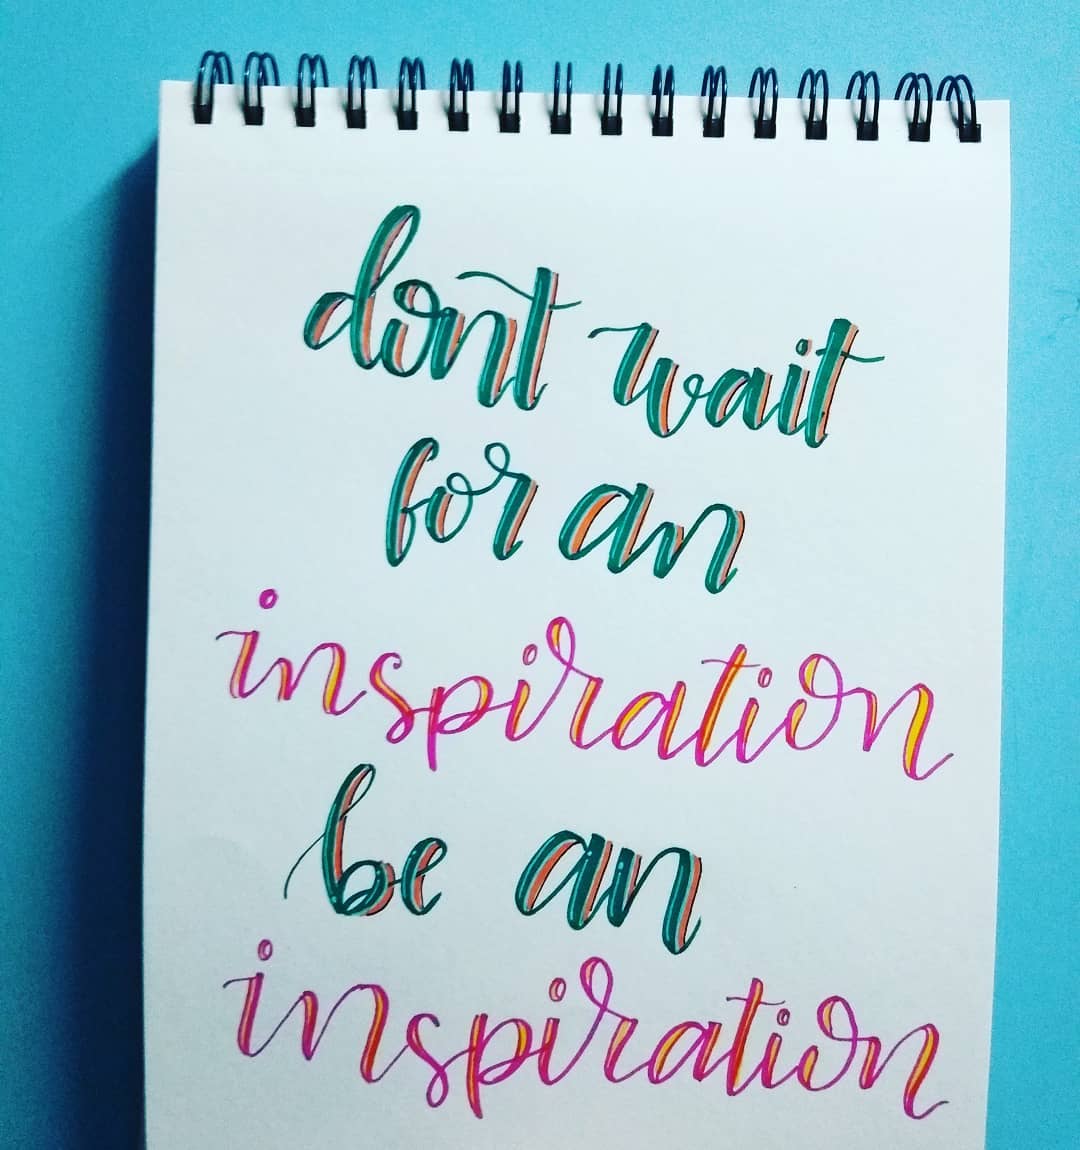 dont wait
for an
inspiration
be an
inspiration